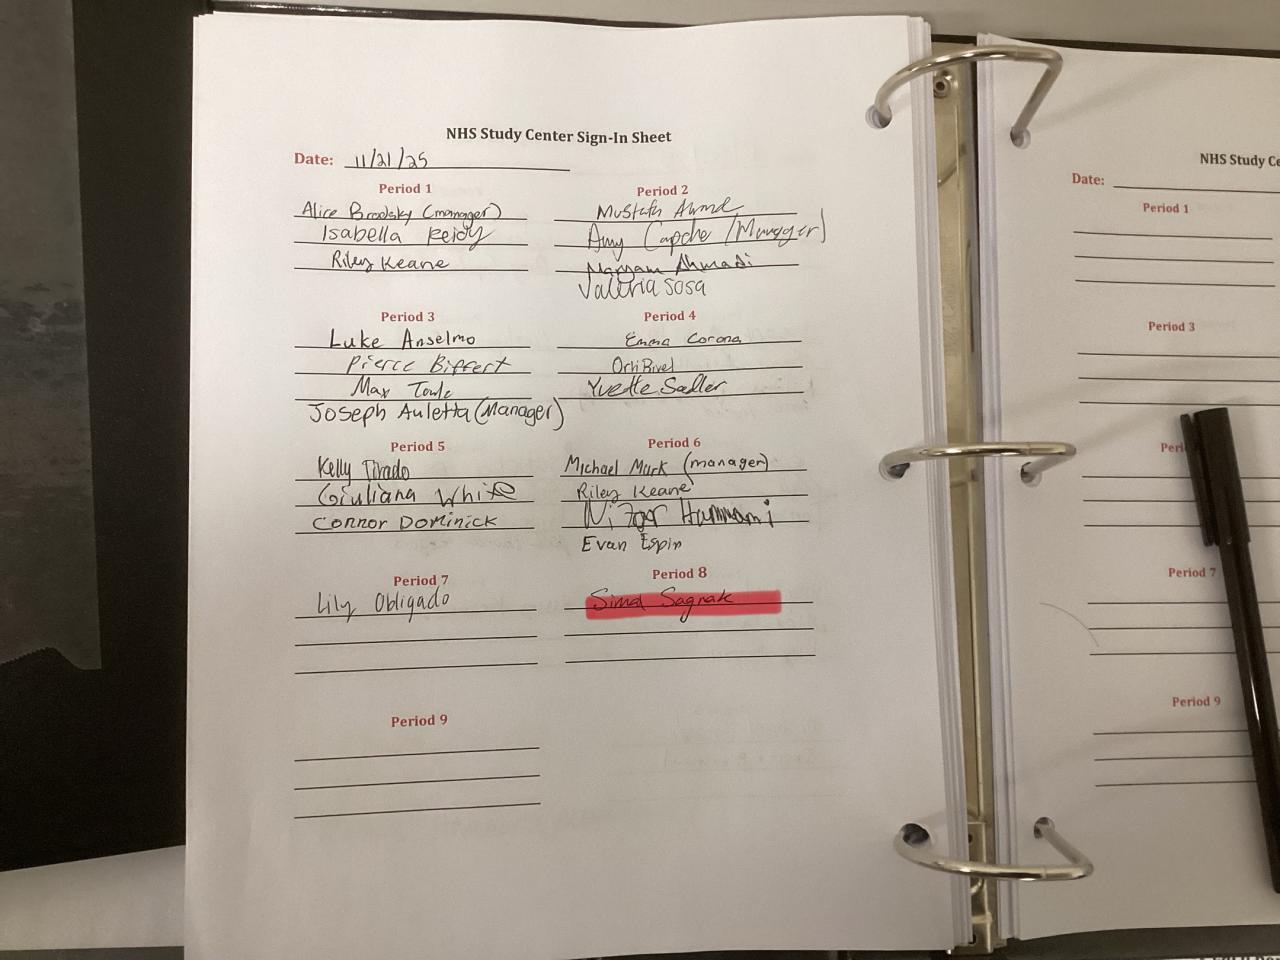 NHS Study Center Sign-In Sheet
Date: 11/21/25
Period 1
Alice Brodsky (manager)
Isabella Reidy
Riley Keane
Period 2
Mustafa
Amy Capche (Manager)
Maryam Ahmadi
Valeria Sosa
Period 3
Luke Anselmo
Pierce Biffert
Max
Joseph Auletta (Manager)
Period 4
Emma Corona
Yvette Sadler
Period 5
Kelly Tirado
Giuliana White
Connor Dominick
Period 6
Michael Murk (manager)
Riley Keane
Nizar Hammami
Evan Espin
Period 7
Lily Obligado
Period 8
Simal Sagnak
Period 9
NHS Study
Date:
Period 1
Period 3
Period 7
Period 9